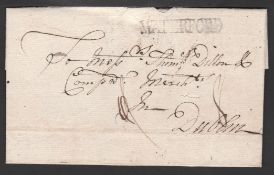 WATERFORD
To Mess.rs Thom.s Dillon &
Comp.a Merch.ts
In
Dublin